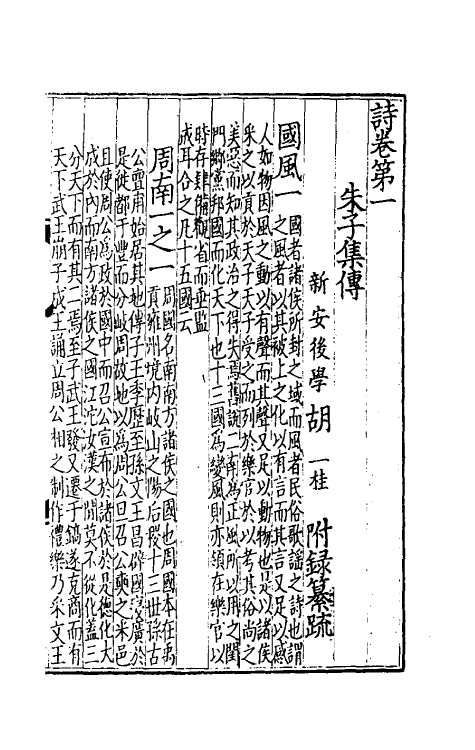 詩卷第一
朱子集傳
新安後學胡一桂附錄纂疏
國風一
國者諸侯所封之域而風者民俗歌謠之詩也謂
之風者以其被上之化以有言而其言又足以感
人如物因風之動以有聲而其聲又足以動物也是以諸侯
采之以貢於天子天子受之而列於樂官於以考其俗尚之
美惡而知其政治之得失焉舊說二南為正風所以用之閨
門鄉黨邦國而化天下也十三國為變風則亦領在樂官以
時存肄備觀省而垂監
戒耳合之凡十五國云
周南一之一
周國名南南方諸侯之國也周國本在禹
貢雍州境内岐山之陽后稷十三世孫古
公亶甫始居其地傳子王季歷至孫文王昌辟國寖廣於
是徙都于豐而分岐周故地以為周公旦召公奭之采邑
且使周公為政於國中而召公宣布於諸侯於是德化大
成於内而南方諸侯之國江沱汝漢之間莫不從化蓋三
分天下而有其二焉至子武王發又遷于鎬遂克商而有
天下武王崩子成王誦立周公相之制作禮樂乃采文王